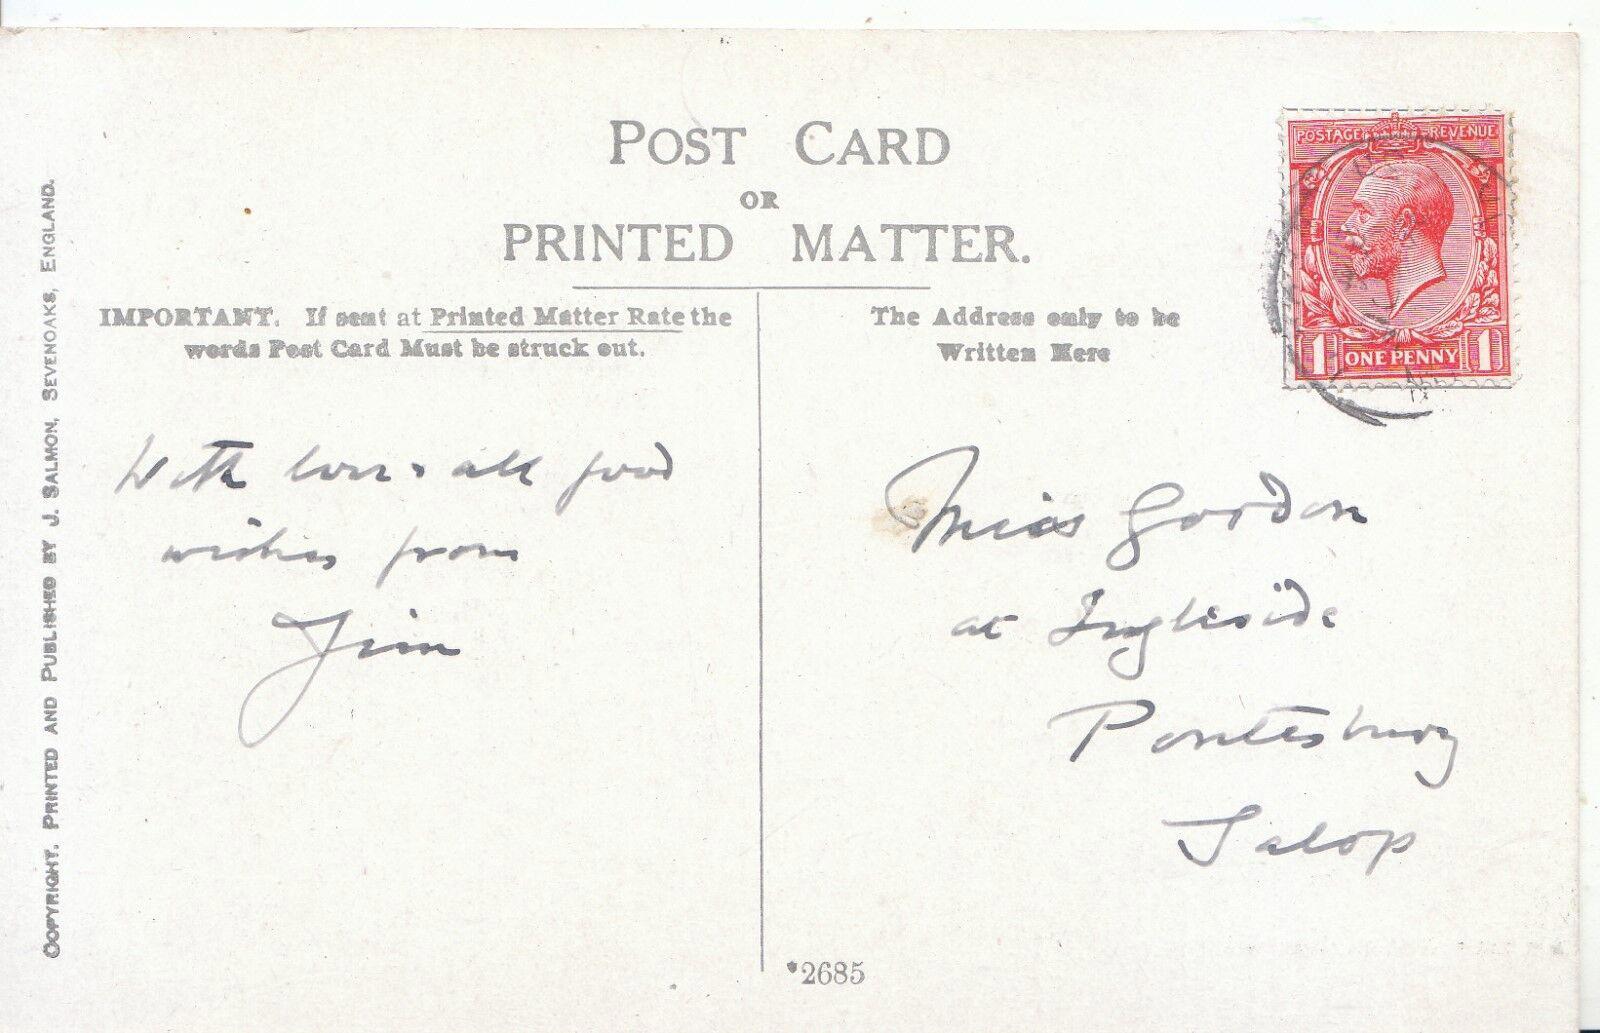 POST CARD
OR
PRINTED MATTER.
IMPORTANT. If sent at Printed Matter Rate the
words Post Card Must be struck out.
The Address only to be
Written Here
POSTAGE REVENUE
1 ONE PENNY 1
With love & all good
wishes from
Jim
Miss Gordon
at Ingleside
Pontesbury
Salop
COPYRIGHT. PRINTED AND PUBLISHED BY J. SALMON, SEVENOAKS, ENGLAND.
*2685